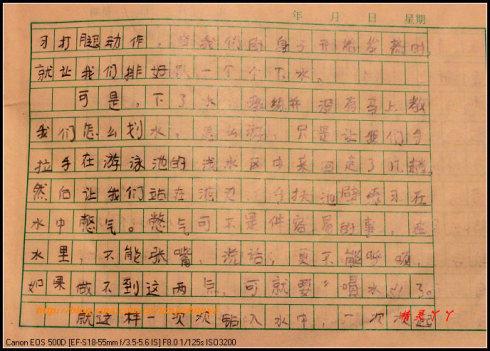 年 月 日 星期
习打腿动作，当我们的身子开始发热时，
就让我们排好队一个个下水。
可是，下了水，教练并没有马上教
我们怎么划水，怎么游，只是让我们手
拉手在游泳池的浅水区中来回走了几趟。
然后让我们站在池边，手扶池壁练习在
水中憋气。憋气可不是件容易的事，在
水里，不能张嘴，说话，更不能呼吸，
如果做不到这两点，可就要"喝水"了。
就这样一次次钻入水中，一次次
Canon EOS 500D [EF-S18-55mm f/3.5-5.6 IS] F8.0 1/125s ISO3200